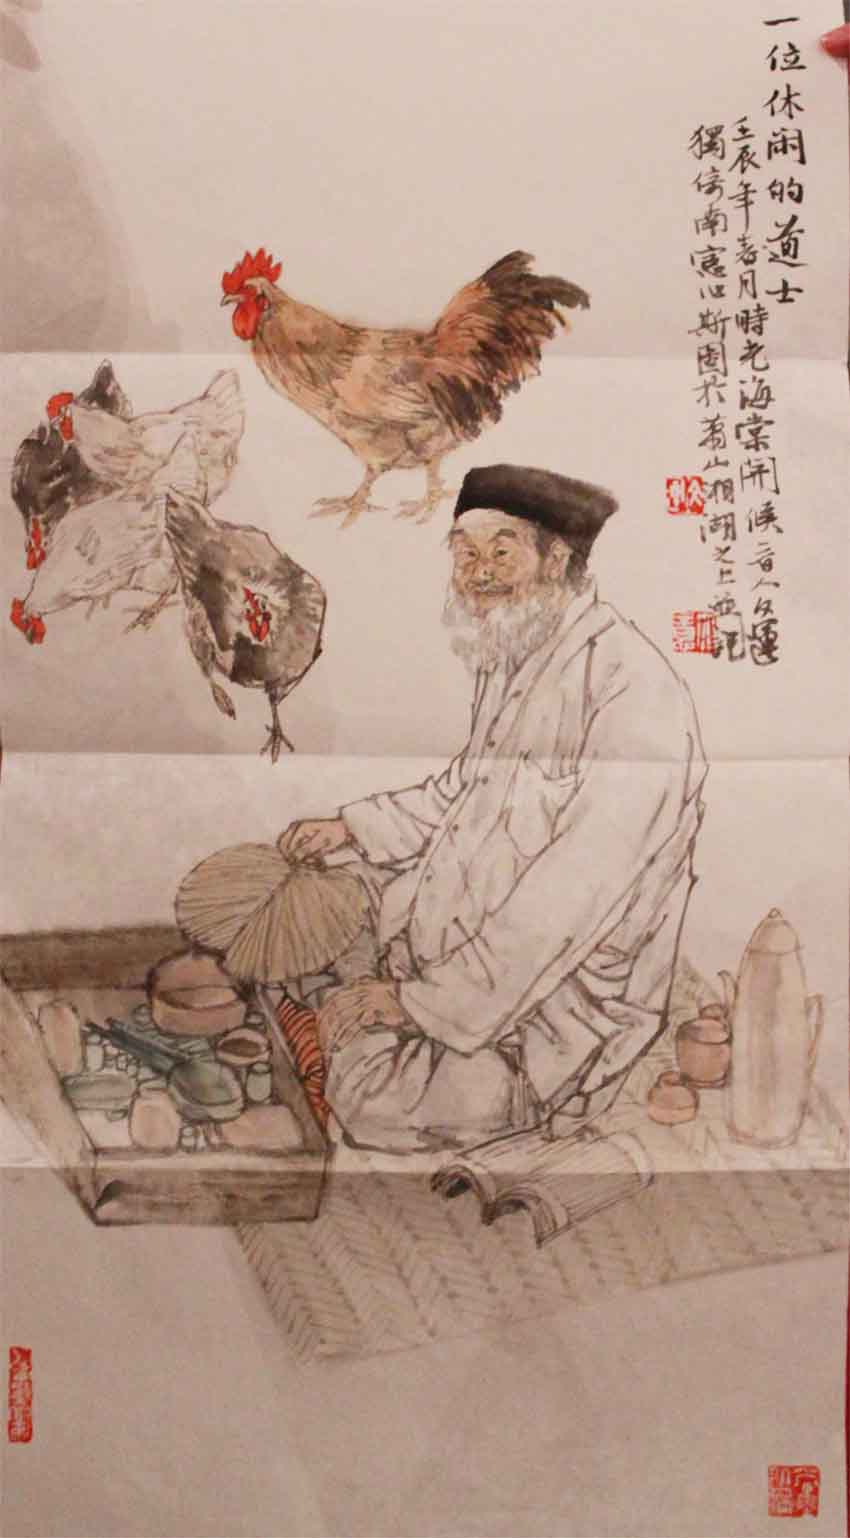 一位休闲的道士
壬辰年春月時光海棠開候
獨倚南窗作斯圖於蕭山湘湖之上並記